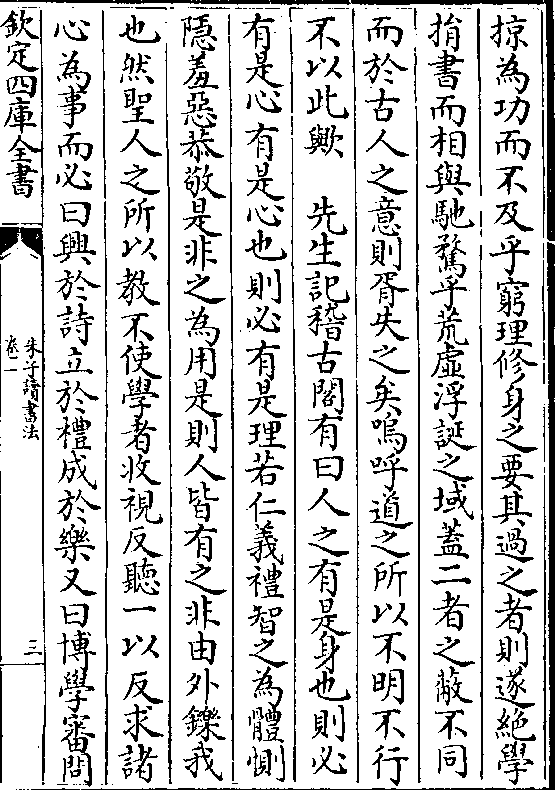 掠為功而不及乎窮理修身之要其過之者則遂絶學
捐書而相與馳騖乎荒虛浮誕之域蓋二者之蔽不同
而於古人之意則胥失之矣嗚呼道之所以不明不行
不以此歟　先生記稽古閣有曰人之有是身也則必
有是心有是心也則必有是理若仁義禮智之為體惻
隱羞惡恭敬是非之為用是則人皆有之非由外鑠我
也然聖人之所以教不使學者收視反聽一以反求諸
心為事而必曰興於詩立於禮成於樂又曰博學審問
欽定四庫全書
朱子讀書法
卷一
三